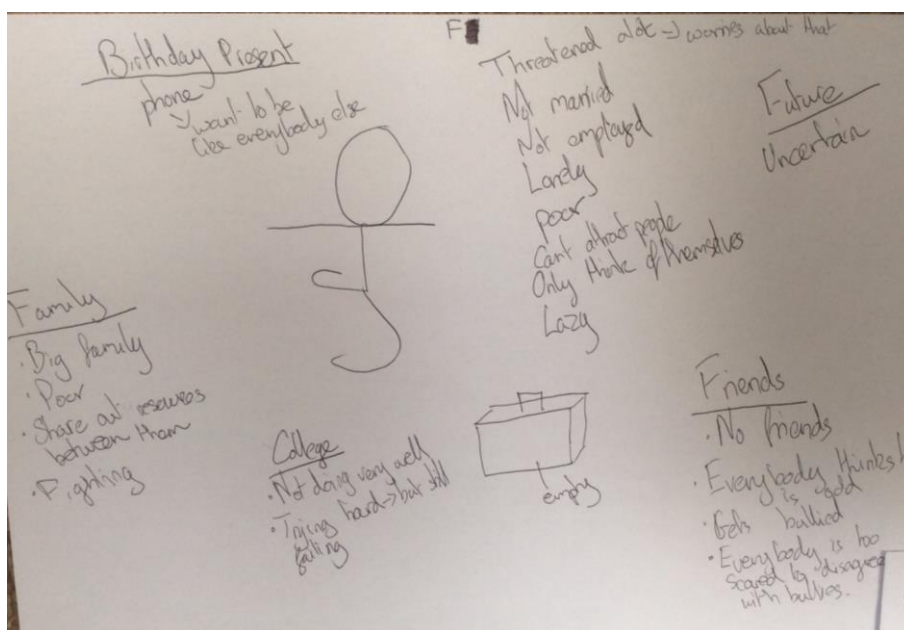 Birthday Present
phone
want to be
like everybody else
F
Threatened alot → worries about that
Not married
Not employed
Lonely
poor
Cant attract people
Only think of themselves
Lazy
Future
Uncertain
Family
· Big family
· Poor
· Share out resources
between them
· Fighting
College
· Not doing very well
· Trying hard → but still
failing
empty
Friends
· No friends
· Everybody thinks
is odd
· Gets bullied
· Everybody is too
scared to disagree
with bullies.